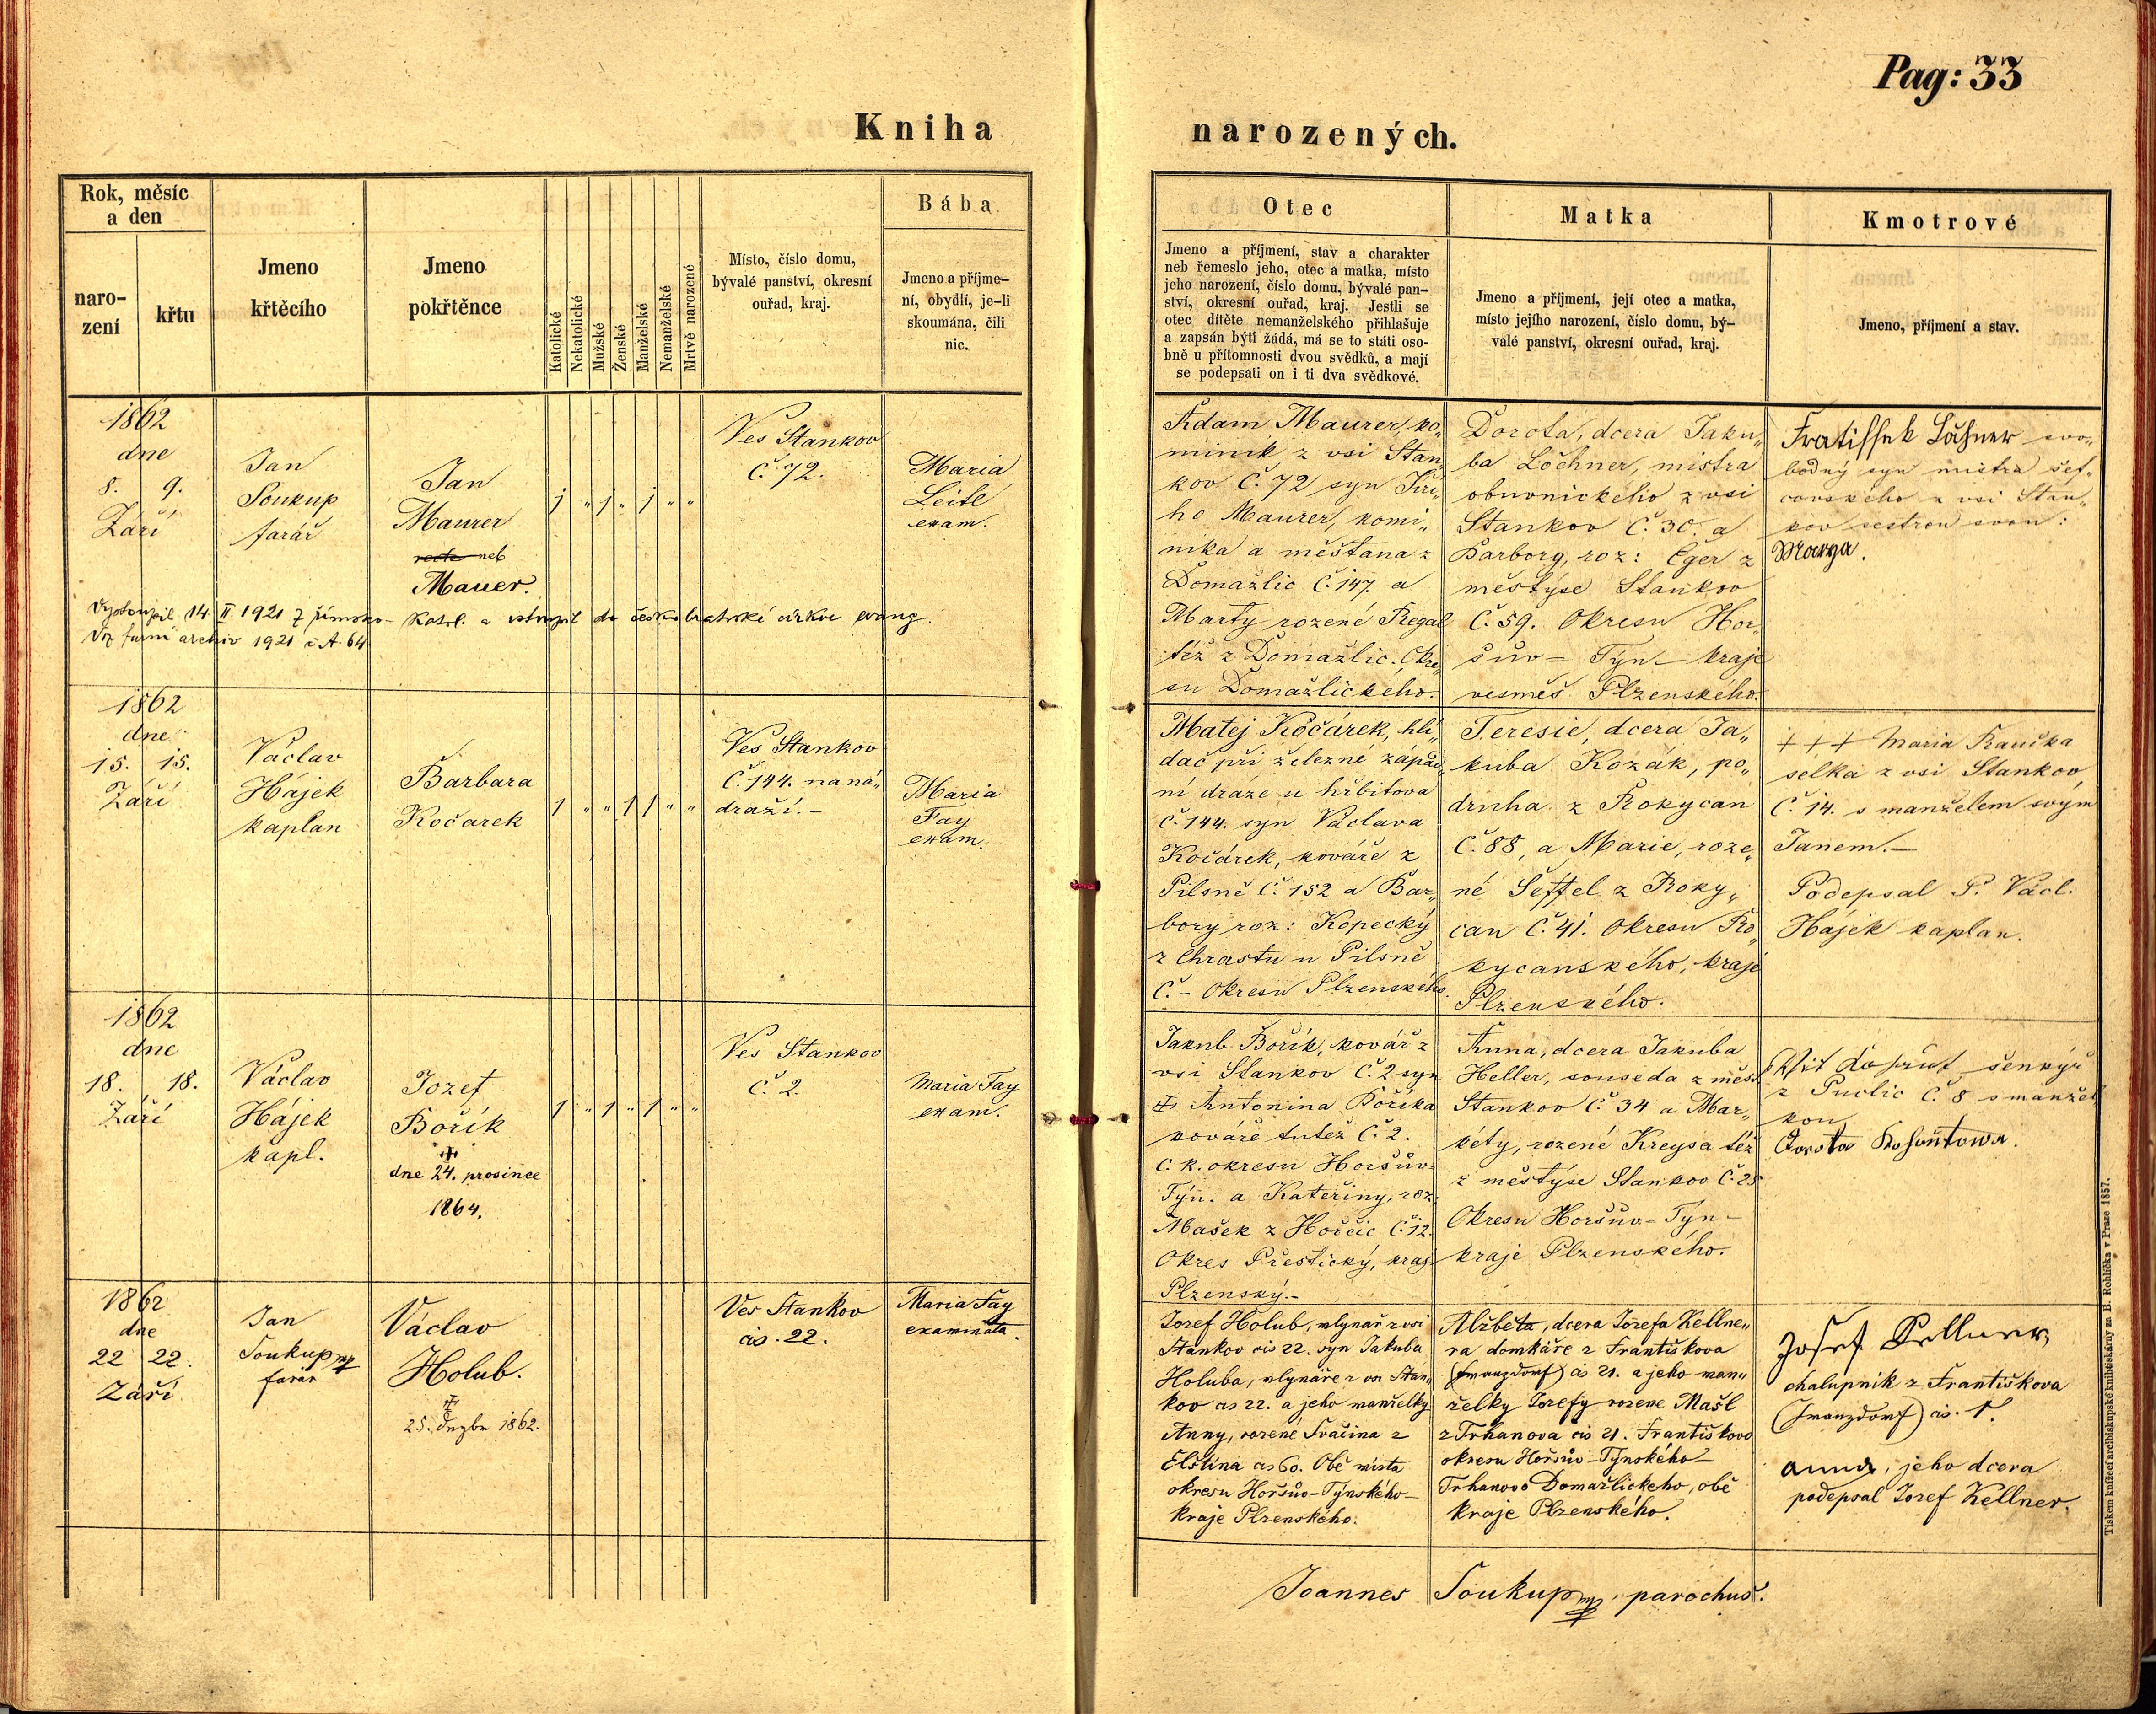 Pag: 33
Kniha narozených.
Rok, měsíc
a den
naro-
zení
křtu
Jmeno
křtěcího
Jmeno
pokřtěnce
Katolické
Nekatolické
Mužské
Ženské
Manželské
Nemanželské
Mrtvě narozené
Místo, číslo domu,
bývalé panství, okresní
ouřad, kraj.
Bába
Jmeno a příjme-
ní, obydlí, je-li
skoumána, čili
nic.
Otec
Jmeno a příjmení, stav a charakter
neb řemeslo jeho, otec a matka, místo
jeho narození, číslo domu, bývalé pan-
ství, okresní ouřad, kraj. Jestli se
otec dítěte nemanželského přihlašuje
a zapsán býti žádá, má se to státi oso-
bně u přítomnosti dvou svědků, a mají
se podepsati on i ti dva svědkové.
Matka
Jmeno a příjmení, její otec a matka,
místo jejího narození, číslo domu, bý-
valé panství, okresní ouřad, kraj.
Kmotrové
Jmeno, příjmení a stav.
1862
dne
8. 9.
Září
Jan
Soukup
farář
Jan
Maurer
recte neb
Mauer.
1 " 1 " 1 " "
Ves Stankov
Č. 72.
Maria
Leitl
exam.
Vystoupil 14 II. 1921 z římsko-katol. a vstoupil do českobratrské církve evang.
Viz farní archiv 1921 č A 64
Adam Maurer, ko„
miník z vsi Stan„
kov Č. 72 syn Jiří„
ho Maurer, komi„
níka a měšťana z
Domažlic Č. 147. a
Marty rozené Regal
též z Domažlic. Okre„
su Domažlického.
Dorota, dcera Jaku„
ba Löchner, mistra
obuvnického z vsi
Stankov Č. 30. a
Barbory, roz: Eger z
městýse Stankov
Č. 59. Okresu Hor„
šův= Týn- kraje
vesměs Plzenského.
Fratiſſek Löchner svo„
bodný syn mistra šef„
covského z vsi Stan„
kov sestrou svou:
Marya.
1862
dne
15. 15.
Září
Václav
Hájek
kaplan
Barbara
Kočarek
1 " " 1 1 " "
Ves Stankov
Č. 144. na ná„
draží.-
Maria
Fay
exam.
Matej Kočárek, hlí„
dač při železné západ„
ní dráze u hřbitova
Č. 144. syn Václava
Kočárek, kováře z
Pilsně Č. 152 a Bar„
bory roz: Kopecký
z Chrastu u Pilsně
Č. - Okresu Plzenského.
Teresie, dcera Ja„
kuba Kozák, po„
druha z Rokycan
Č. 88, a Marie, roze„
né Šeffel z Roky„
can Č. 41. Okresu Ro„
kycanského, kraje
Plzenského.
+++ Maria Kaučka
selka z vsi Stankov
Č. 14. s manželem svým
Janem.-
Podepsal P. Václ.
Hájek kaplan.
1862
dne
18. 18.
Září
Václav
Hájek
kapl.
Jozef
Bořík
dne 24. prosince
1864.
1 " 1 " 1 " "
Ves Stankov
Č. 2.
Maria Fay
exam.
Jakub Bořík, kovář z
vsi Stankov Č. 2 syn
Antonina Boříka
kováře tutéž Č. 2.
c. k. okresu Horšův-
Týn. a Kateřiny, roz.
Mašek z Horčic Č. 12.
Okres Přestický, kraj
Plzenský.-
Anna, dcera Jakuba
Heller, souseda z měst.
Stankov Č. 34 a Mar„
kéty, rozené Kreysa též
z městýse Stankov Č. 25
Okresu Horšův= Týn-
kraje Plzenského.
Vit Kohout šenkýř
z Puclic Č. 8 s manžel
kou
Dorota Kohoutowa.
1862
dne
22 22.
Září
Jan
Soukup mp
farář
Václav
Holub.
25. 1862.
Ves Stankov
čís. 22.
Maria Fay
examinata.
Jozef Holub, mlynář z vsi
Stankov čís 22. syn Jakuba
Holuba, mlynáře z vsi Stan„
kov čís 22. a jeho manželky
Anny, rozené Svačina z
Elštína čís 60. Obě místa
okresu Horšův-Týnského-
kraje Plzenského.
Alžběta, dcera Jozefa Kellne„
ra domkáře z Františkova
(Franzdorf) čís 21. a jeho man„
želky Jozefy rozene Mašl
z Trhanova čís 21. Františkovo
okresu Horšův-Týnského-
Trhanovo Domažlického, obě
kraje Plzenského.
Josef Kellner,
chalupník z Františkova
(Franzdorf) čís. 1.
Anna, jeho dcera
podepsal Jozef Kellner.
Joannes Soukup mp, parochus.
Tiskem knížecí arcibiskupské knihtiskárny za B. Rohlíčka v Praze 1857.